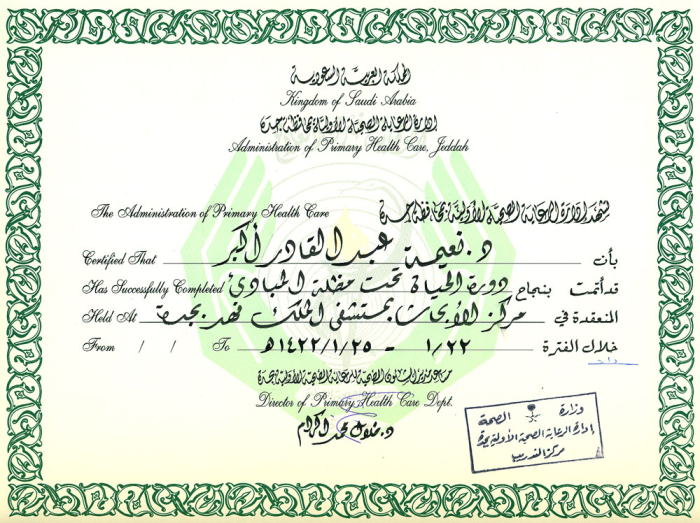 المملكة العربية السعودية
Kingdom of Saudi Arabia
إدارة الرعاية الصحية الأولية بمحافظة جدة
Administration of Primary Health Care, Jeddah
The Administration of Primary Health Care تشهد إدارة الرعاية الصحية الأولية بمحافظة جدة
Certified That د. نعيمة عبد القادر أكبر بأن
Has Successfully Completed قد أتمت بنجاح دورة الحياة تحت مظلة المبادئ
Held At المنعقدة في مركز الأبحاث بمستشفى الملك فهد بجدة
From / / To خلال الفترة ١/٢٢ - ١٤٢٢/١/٢٥هـ
مساعد مدير الشئون الصحية للرعاية الصحية الأولية بجدة
Director of Primary Health Care Dept.
د. محمد إكرام
وزارة الصحة
إدارة الرعاية الصحية الأولية بجدة
مركز التدريب